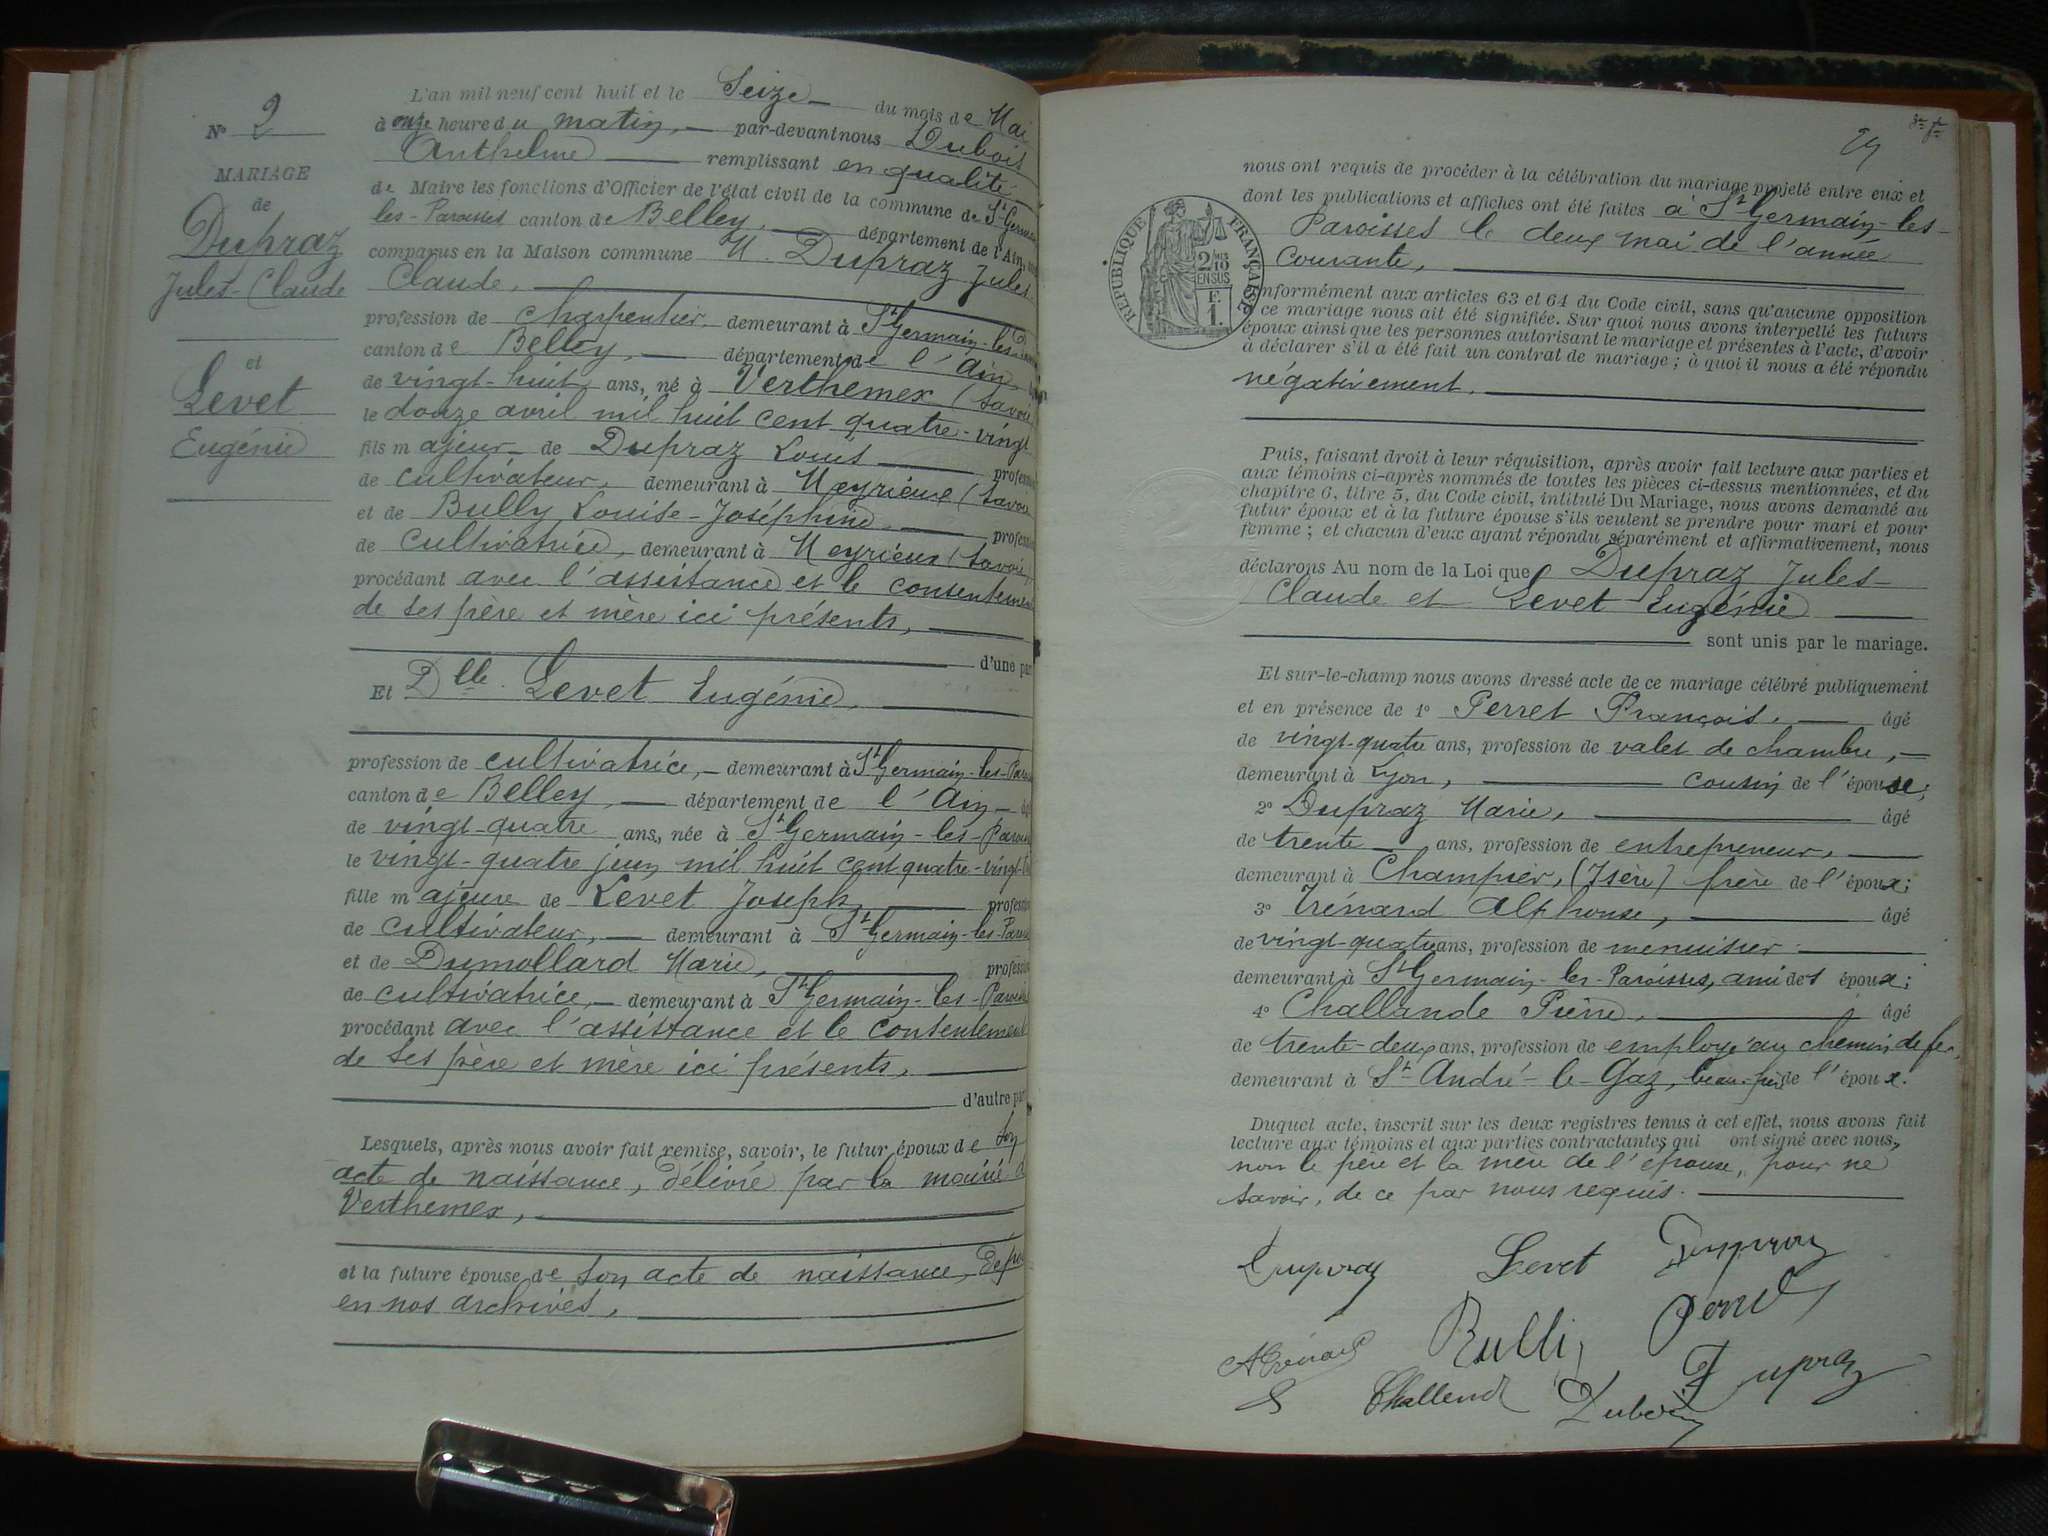 N° 2
MARIAGE
de
Dupraz
Jules-Claude
et
Levet
Eugénie
L'an mil neuf cent huit et le Seize du mois de Mai
à onze heure du matin, par-devant nous Dubois
Anthelme remplissant en qualité
de Maire les fonctions d'Officier de l'état civil de la commune de St Germain
les-Paroisses canton de Belley, département de l'Ain,
comparus en la Maison commune M. Dupraz Jules-
Claude,
profession de charpentier, demeurant à St Germain-les-
canton de Belley, département de l'Ain
de vingt-huit ans, né à Verthemex (Savoie
le douze avril mil huit cent quatre-vingt
fils majeur de Dupraz Louis profession
de cultivateur, demeurant à Meyrieux (Savoie
et de Bully Louise-Joséphine profession
de cultivatrice, demeurant à Meyrieux (Savoie)
procédant avec l'assistance et le consentement
de ses père et mère ici présents,
d'une part
Et Dlle Levet Eugénie,
profession de cultivatrice, demeurant à St Germain-les-Parois
canton de Belley, département de l'Ain
de vingt-quatre ans, née à St Germain-les-Parois
le vingt-quatre juin mil huit cent quatre-vingt-
fille majeure de Levet Joseph, profession
de cultivateur, demeurant à St Germain-les-Parois
et de Dumollard Marie, profession
de cultivatrice, demeurant à St Germain-les-Parois
procédant avec l'assistance et le consentement
de ses père et mère ici présents,
d'autre part
Lesquels, après nous avoir fait remise, savoir, le futur époux de son
acte de naissance, délivré par la mairie d
Verthemex,
et la future épouse de son acte de naissance, dépo
en nos archives,
nous ont requis de procéder à la célébration du mariage projeté entre eux et
dont les publications et affiches ont été faites à St Germain-les-
Paroisses le deux mai de l'année
courante,
RÉPUBLIQUE FRANÇAISE
2/10 EN SUS
F.
1.
conformément aux articles 63 et 64 du Code civil, sans qu'aucune opposition
à ce mariage nous ait été signifiée. Sur quoi nous avons interpellé les futurs
époux ainsi que les personnes autorisant le mariage et présentes à l'acte, d'avoir
à déclarer s'il a été fait un contrat de mariage ; à quoi il nous a été répondu
négativement.
Puis, faisant droit à leur réquisition, après avoir fait lecture aux parties et
aux témoins ci-après nommés de toutes les pièces ci-dessus mentionnées, et du
chapitre 6, titre 5, du Code civil, intitulé Du Mariage, nous avons demandé au
futur époux et à la future épouse s'ils veulent se prendre pour mari et pour
femme ; et chacun d'eux ayant répondu séparément et affirmativement, nous
déclarons Au nom de la Loi que Dupraz Jules-
Claude et Levet Eugénie
sont unis par le mariage.
Et sur-le-champ nous avons dressé acte de ce mariage célébré publiquement
et en présence de 1° Perret François, âgé
de vingt-quatre ans, profession de valet de chambre,
demeurant à Lyon, cousin de l'épouse;
2° Dupraz Marie, âgé
de trente ans, profession de entrepreneur,
demeurant à Champier, (Isère) frère de l'époux;
3° Trénard Alphonse, âgé
de vingt-quatre ans, profession de menuisier
demeurant à St Germain-les-Paroisses, ami des époux;
4° Challande Pierre, âgé
de trente-deux ans, profession de employé au chemin de fer,
demeurant à St-André-le-Gaz, beau-frère de l'époux.
Duquel acte, inscrit sur les deux registres tenus à cet effet, nous avons fait
lecture aux témoins et aux parties contractantes qui ont signé avec nous,
non le père et la mère de l'épouse, pour ne
savoir, de ce par nous requis.
Dupraz Levet Dupraz
Bulli Perret
ATrénard Challend Dubois Dupraz